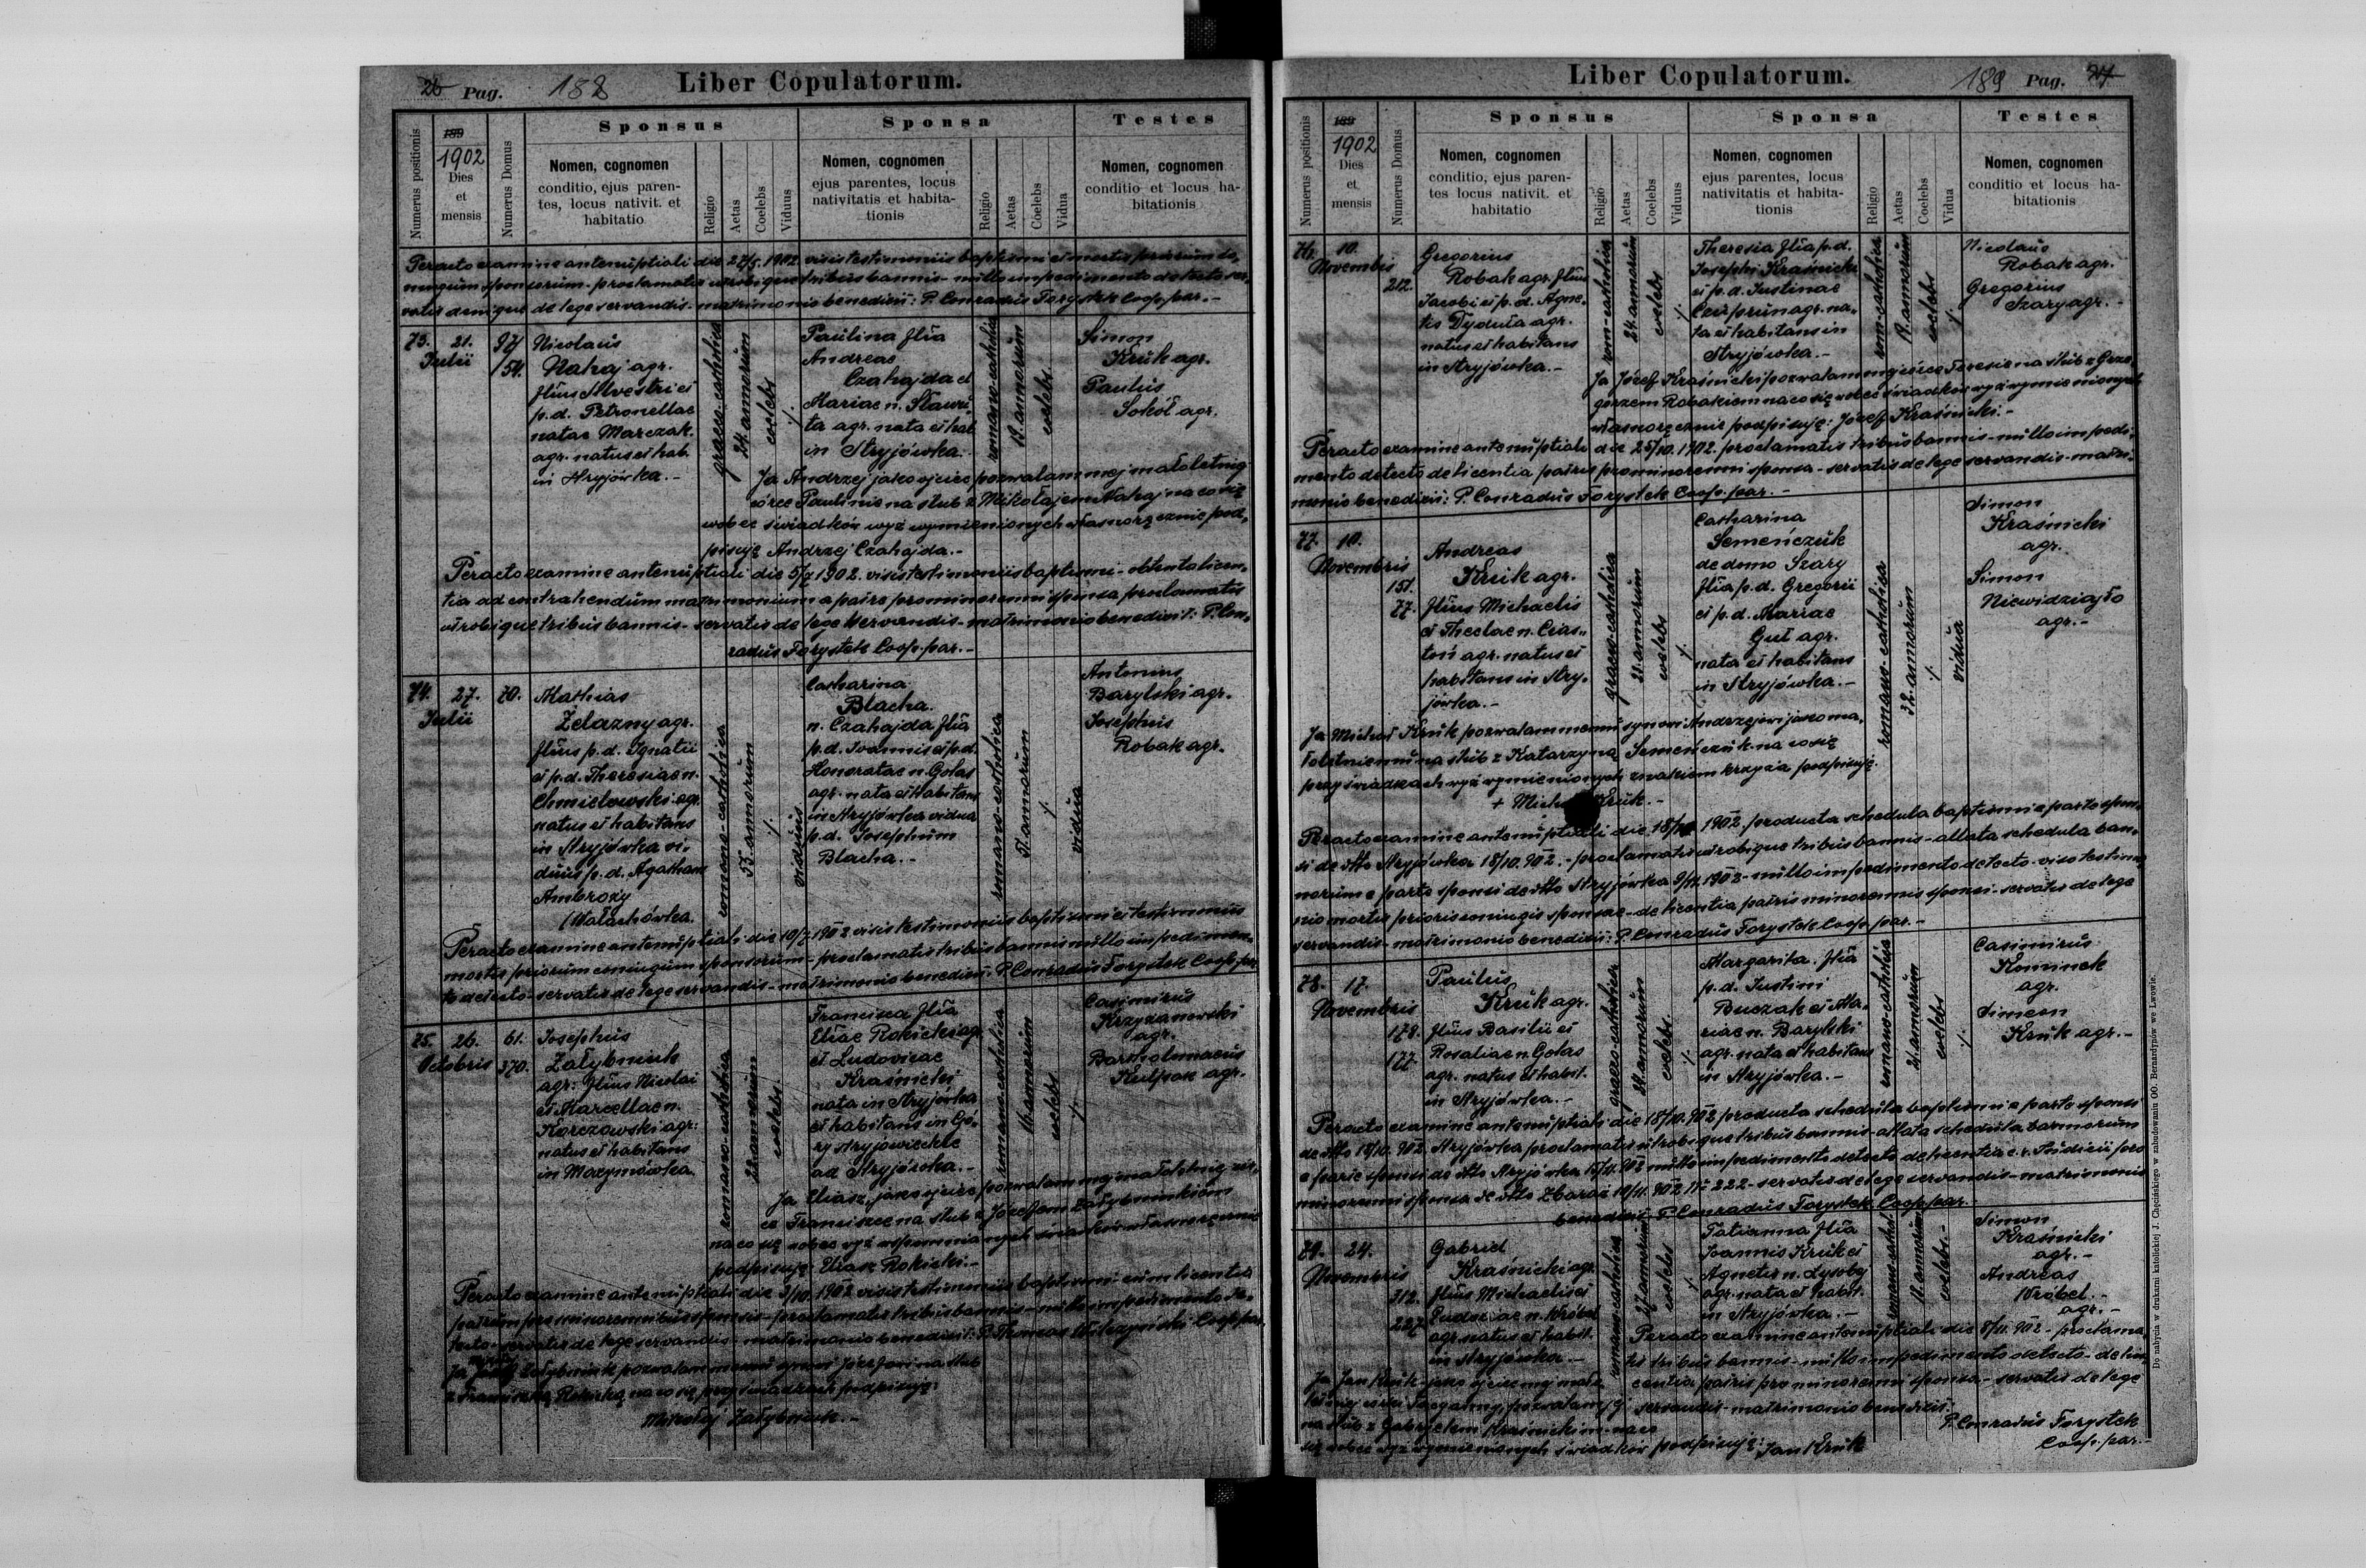 26 Pag. 188 Liber Copulatorum.
Numerus positionis
189
1902
Dies
et
mensis
Numerus Domus
Sponsus
Nomen, cognomen
conditio, ejus paren-
tes, locus nativit. et
habitatio
Religio
Aetas
Coelebs
Viduus
Sponsa
Nomen, cognomen
ejus parentes, locus
nativitatis et habita-
tionis
Religio
Aetas
Coelebs
Vidua
Testes
Nomen, cognomen
conditio et locus ha-
bitationis
Peracto examine antenuptiali die 27/5. 1902 visis testimoniis baptismi et mortis
sponsorum - proclamatis utrobique tribus bannis - nullo impedimento detecto ser,
vatis denique de lege servandis - matrimonio benedixi: P. Conradus Forystek Coop. par. -
73. 21.
Julii
97
154.
Nicolaus
Nahaj agr.
filius Silvestri et
p. d. Petronellae
natae Marczak.
agr. natus et hab.
in Stryjówka. -
graeco-catholica
24. annorum
coelebs
Paulina filia
Andreae
Czahajda et
Mariae n. Stawi,
ta agr. nata et hab
in Stryjówka. -
romano-catholica
19. annorum
coelebs
Simon
Kruk agr.
Paulus
Sokół agr.
Ja Andrzej jako ojciec pozwalam mej małoletniej
córce Paulinie na ślub z Mikołajem Nahaj na co się
wobec świadków wyż wymienionych własnoręcznie pod,
pisuję Andrzej Czahajda. -
Peracto examine antenuptiali die 5/7 1902. visis testimoniis baptismi - obtenta licen,
tia ad contrahendum matrimonium a patre pro minorenni sponsa proclamatis
utrobique tribus bannis - servatis de lege servandis - matrimonio benedixi: P. Con,
radus Forystek Coop. par. -
74. 27.
Julii
70.
Mathias
Żelazny agr.
filius p. d. Ignatii
et p. d. Theresiae n.
Chmielowski agr.
natus et habitans
in Stryjówka vi,
duus p. d. Agatham
Ambrozy
(Wałachówka
romano-catholica
55. annorum
viduus
Catharina
Blacha.
n. Czahajda filia
p. d. Joannis et p. d.
Honoratae n. Gołas
agr. nata et habitans
in Stryjówka vidua
p. d. Josephum
Blacha. -
romano-catholica
51. annorum
vidua
Antonius
Barylski agr.
Josephus
Robak agr.
Peracto examine antenuptiali die 10/7 1902 visis testimoniis baptismi et testimoniis
mortis priorum coniugum sponsorum - proclamatis tribus bannis nullo impedimen,
to detecto - servatis de lege servandis - matrimonio benedixi. P. Conradus Forystek Coop. par
75. 26.
Octobris
61.
370.
Josephus
Załybniuk
agr. filius Nicolai
et Marcellae n.
Korczowski agr.
natus et habitans
in Maxymówka
romano-catholica
22. annorum
coelebs
Francisca filia
Eliae Rokicki agr
et Ludovicae
Kraśnicki
nata in Stryjówka
et habitans in Gó,
ry Stryjowieckie
ad Stryjówka. -
romano-catholica
16 annorum
coelebs
Casimirus
Krzyżanowski
agr.
Bartholomaeus
Kulpak agr.
Ja Eliasz, jako ojciec pozwalam mej małoletniej cór,
ce Franciszce na ślub z Józefem Załybniukiem
na co się wobec wyż wspomnianych świadków własnoręcznie
podpisuję Eliasz Rokicki. -
Peracto examine antenuptiali die 3/10. 1902 visis testimoniis baptismi cum licentia
patrum pro minorennibus sponsis - proclamatis tribus bannis - nullo impedimento de,
tecto - servatis de lege servandis - matrimonio benedixit: P. Thomas Coop. par.
Ja Załybniuk pozwalam memu synowi Józefowi na ślub
z Franciszką Rokicką na co się przy świadkach podpisuję:
Mikołaj Załybniuk. -
Liber Copulatorum. 189 Pag. 27
Numerus positionis
189
1902
Dies
et
mensis
Numerus Domus
Sponsus
Nomen, cognomen
conditio, ejus paren-
tes locus nativit. et
habitatio
Religio
Aetas
Coelebs
Viduus
Sponsa
Nomen, cognomen
ejus parentes, locus
nativitatis et habita-
tionis
Religio
Aetas
Coelebs
Vidua
Testes
Nomen, cognomen
conditio et locus ha-
bitationis
76. 10.
Novembris
212.
Gregorius
Robak agr. filius
Jacobi et p. d. Agne,
tis Dyduła agr.
natus et habitans
in Stryjówka. -
rom-catholica
24. annorum
coelebs
Theresia filia p. d.
Josephi Kraśnicki
et p. d. Justinae
Czuprun agr. na,
ta et habitans in
Stryjówka. -
rom-catholica
19. annorum
coelebs
Nicolaus
Robak agr.
Gregorius
Szary agr. -
Ja Józef Kraśnicki pozwalam mej córce Teresie na ślub z Grze,
gorzem Robakiem na co się wobec świadków wyż wymienionych
własnoręcznie podpisuję: Józef Kraśnicki. -
Peracto examine antenuptiali die 25/10. 1902. proclamatis tribus bannis - nullo impedi,
mento detecto de licentia patris pro minorenni sponsa - servatis de lege servandis - matri,
monio benedixi: P. Conradus Forystek Coop. par. -
77. 10.
Novembris
151.
77.
Andreas
Kruk agr.
filius Michaelis
et Theclae n. Cias,
toń agr. natus et
habitans in Stry,
jówka. -
graeco-catholica
21. annorum
coelebs
Catharina
Semeńczuk
de domo Szary
filia p. d. Gregorii
et p. d. Mariae
Gut agr.
nata et habitans
in Stryjówka. -
romano-catholica
32. annorum
vidua
Simon
Kraśnicki
agr.
Simon
Niewidziajło
agr. -
Ja Michał Kruk pozwalam memu synowi Andrzejowi jako ma,
łoletniemu na ślub z Katarzyną Semeńczuk na co się
przy świadkach wyż wymienionych znakiem krzyża podpisuję.
+ Michał Kruk. -
Peracto examine antenuptiali die 18/10 1902. producta schedula baptismi e parte spon,
si de dtto Stryjówka 18/10. 902. - proclamatis utrobique tribus bannis - allata schedula ban,
norum e parte sponsi de dtto Stryjówka 9/11. 1902 - nullo impedimento detecto - viso testimo,
nio mortis prioris coniugis sponsae - de licentia patris minorennis sponsi - servatis de lege
servandis - matrimonio benedixi: P. Conradus Forystek Coop. par. -
78. 17.
Novembris
178.
177.
Paulus
Kruk agr.
filius Basilii et
Rosaliae n. Gołas
agr. natus et habit.
in Stryjówka. -
graeco-catholica
24. annorum
coelebs
Margarita filia
p. d. Justini
Buczak et Ma,
riae n. Barylski
agr. nata et habitans
in Stryjówka. -
romano-catholica
21. annorum
coelebs
Casimirus
Kominek
agr.
Simeon
Kruk agr. -
Peracto examine antenuptiali die 18/10. 902 producta schedula baptismi e parte sponsi
de dtto 18/10. 902 Stryjówka proclamatis utrobique tribus bannis - allata schedula bannorum
e parte sponsi de dtto Stryjówka 902 nullo impedimento detecto de licentia c. r. Judicii pro
minorenni sponsa de dtto Zbaraż 10/11. 902 № 222 - servatis de lege servandis - matrimonio
benedixi P. Conradus Forystek Coop. par. -
79. 24.
Novembris
312.
227.
Gabriel
Kraśnicki agr.
filius Michaelis et
Eudociae n. Wróbel
agr. natus et habit.
in Stryjówka. -
romano-catholica
27 annorum
coelebs
Tatianna filia
Joannis Kruk et
Agnetis n. Łysoby
agr. nata et habit.
in Stryjówka. -
romano-cathol.
18. annorum
coelebs. -
Simon
Kraśnicki
agr. -
Andreas
Wróbel. -
agr. -
Peracto examine antenuptiali die 8/11. 902 - proclama
tis tribus bannis - nullo impedimento detecto - de li,
centia patris pro minorenni sponsa - servatis de lege
servandis - matrimonio benedixi:
P. Conradus Forystek
Coop. par. -
Ja Jan Kruk jako ojciec mej mało,
letniej córki pozwalam jej
na ślub z Gabryelem Kraśnickim na co
się wobec wyż wymienionych świadków podpisuję: Jan Kruk
Do nabycia w drukarni katolickiej J. Chęcińskiego w zabudowaniu OO. Bernardynów we Lwowie.